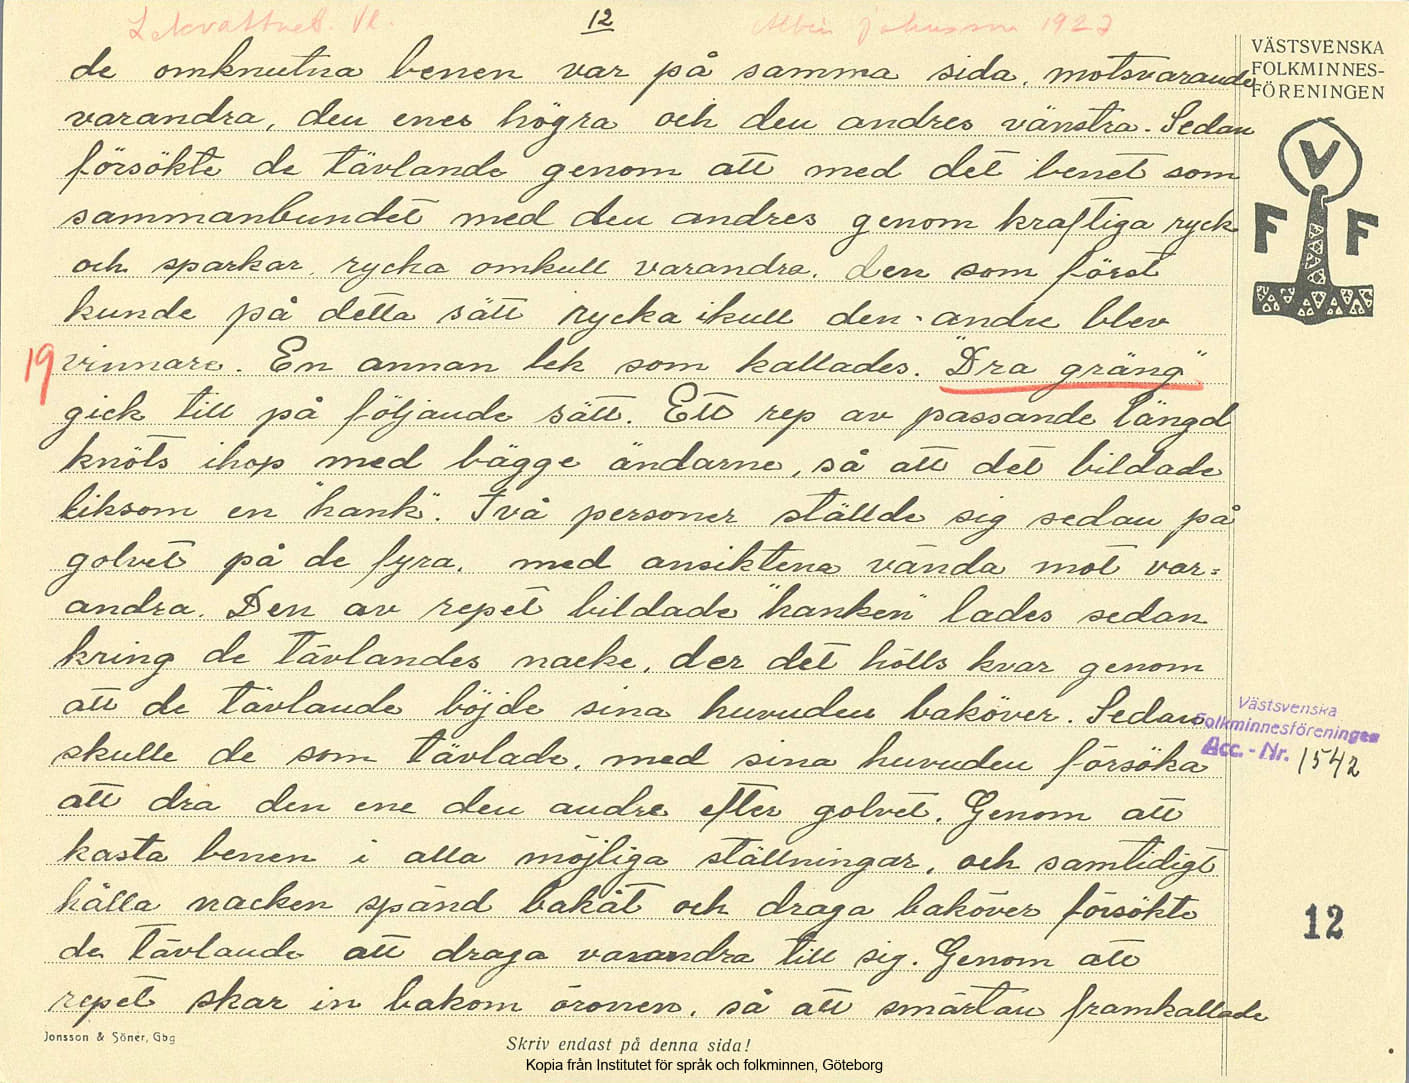 Lekvattnet. Vl.
12
Albin Johnsson 1927
VÄSTSVENSKA
FOLKMINNES-
FÖRENINGEN
V
F F
de omknutna benen var på samma sida, motsvarande
varandra, den enes högra och den andres vänstra. Sedan
försökte de tävlande genom att med det benet som
sammanbundet med den andres genom kraftiga ryck
och sparkar, rycka omkull varandra. den som först
kunde på detta sätt rycka ikull den andre blev
19 vinnare. En annan lek som kallades. "Dra gräng"
gick till på följande sätt. Ett rep av passande längd
knöts ihop med bägge ändarne, så att det bildade
liksom en "hank". Två personer ställde sig sedan på
golvet på de fyra, med ansiktena vända mot var=
andra. Den av repet bildade "hanken" lades sedan
kring de tävlandes nacke, der det hölls kvar genom
att de tävlande böjde sina huvuden baköver. Sedan
skulle de som tävlade, med sina huvuden försöka
att dra den ene den andre efter golvet. Genom att
kasta benen i alla möjliga ställningar, och samtidigt
hålla nacken spänd bakåt och draga baköver försökte
de tävlande att draga varandra till sig. Genom att
repet skar in bakom öronen, så att smärtan framkallade
Västsvenska
Folkminnesföreningen
Acc.-Nr. 1542
12
Jonsson & Söner, Gbg
Skriv endast på denna sida!
Kopia från Institutet för språk och folkminnen, Göteborg